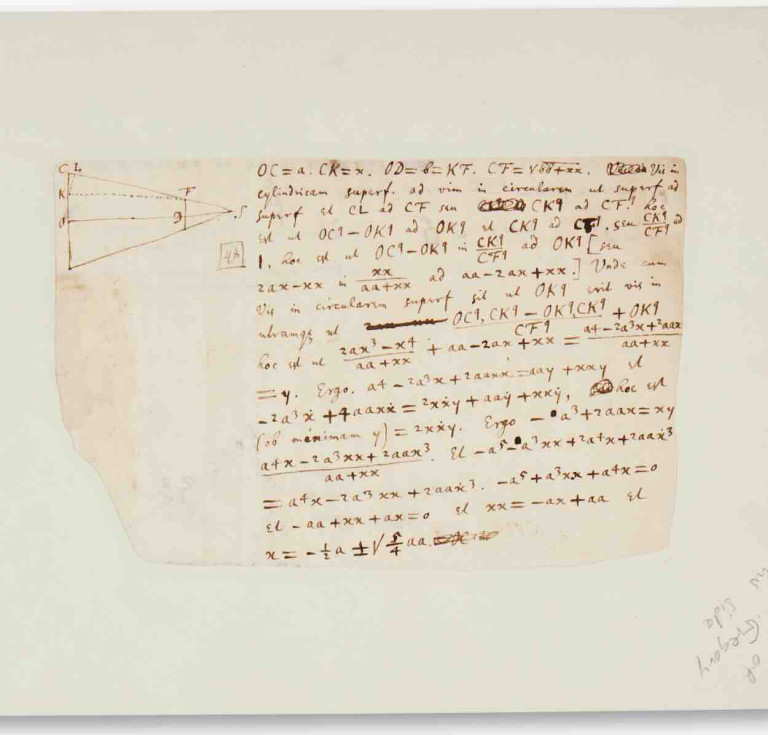 C L
K
F
O
D
S
4A
OC = a. CK = x. OD = b = KF. CF = √bb+xx. Vis in
cylindricam superf. ad vim in circularem ut superf ad
superf et CL ad CF seu CKq ad CFq. hoc
est ut OCq − OKq ad OKq et CKq ad CFq, seu CKq/CFq ad
1, hoc est ut OCq − OKq in CKq/CFq ad OKq [seu
2ax − xx in xx/aa+xx ad aa − 2ax + xx.] Unde cum
Vis in circularem superf sit ut OKq erit vis in
utramqz ut OCq,CKq − OKq,CKq/CFq + OKq
hoc est ut 2ax³ − x4/aa+xx + aa − 2ax + xx = a4 − 2a³x + 2aax/aa+xx
= y. Ergo. a4 − 2a³x + 2aaxx = aay + xxy et
− 2a³ẋ + 4aaxẋ = 2xẋy + aaẏ + xxẏ, hoc est
(ob minimam y) = 2xẋy. Ergo − a³ + 2aax = xy
a4x − 2a³xx + 2aax³/aa+xx. Et − a5 − a³xx + 2a4x + 2aax³
= a4x − 2a³xx + 2aax³. − a5 + a³xx + a4x = 0
et − aa + xx + ax = 0 et xx = −ax + aa et
x = − ½a ± √5/4 aa.
Gregory